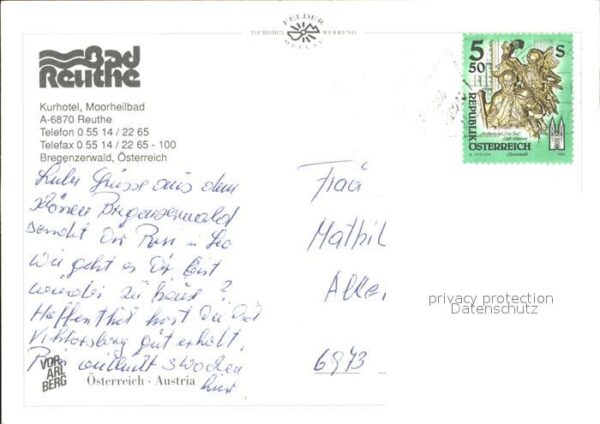 FELDER
TOURISMUS WERBUNG
MELLAU
Bad
Reuthe
Kurhotel, Moorheilbad
A-6870 Reuthe
Telefon 0 55 14 / 22 65
Telefax 0 55 14 / 22 65 - 100
Bregenzerwald, Österreich
5 50 S
REPUBLIK
ÖSTERREICH
Liebe Grüsse aus dem
schönen Bregenzerwald
sendet Dir Rosi u Leo
Wie geht es Dir, bist
wieder zu haus?
Hoffentlich hast Du Dich
Viktorsberg gut erholt.
Rosi 3 Wochen
hier.
Frau
Mathil
6973
VOR
ARL
BERG
Österreich · Austria
privacy protection
Datenschutz